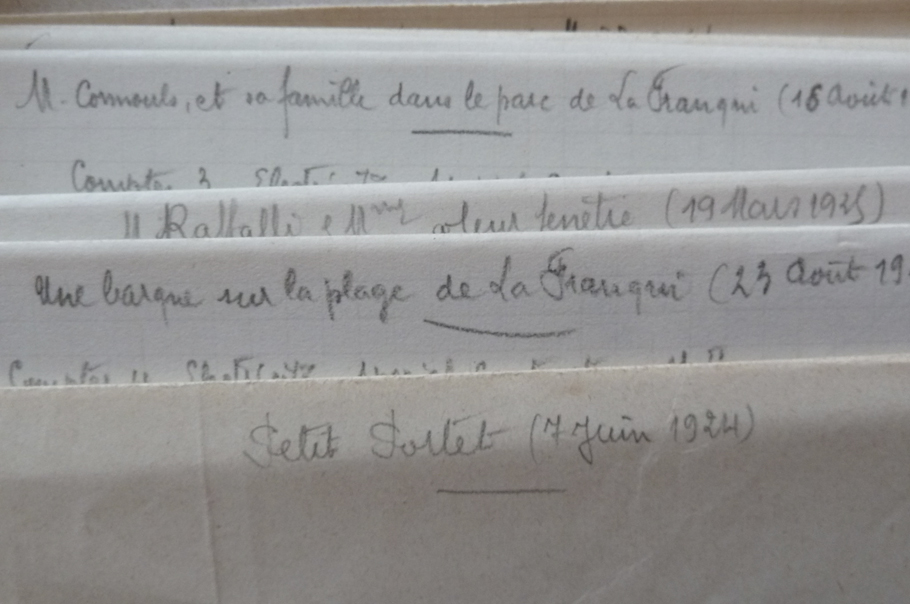 M. Connouls, et sa famille dans le parc de La Franqui (16 Août
M Raffalli & Mme à leur fenêtre (19 Mars 1925)
Une barque sur la plage de La Franqui (23 Août 19
Petit Portet (7 Juin 1924)